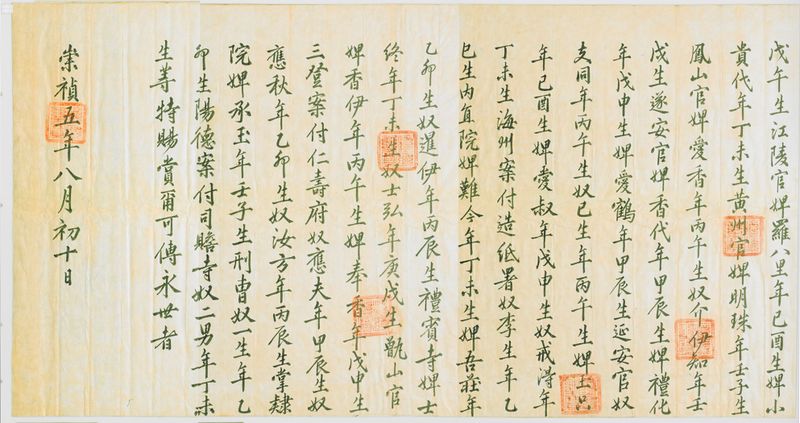 戊午生江陵官婢羅八里年己酉生婢小
貴代年丁未生黃州官婢明珠年壬子生
鳳山官婢愛香年丙午生奴介伊知年壬
戌生遂安官婢香代年甲辰生婢禮化
年戊申生婢愛鶴年甲辰生延安官奴
支同年丙午生奴巳生年丙午生婢士只
年己酉生婢愛叔年戊申生奴戒淂年
丁未生海州案付造紙署奴李生年乙
巳生內資院婢難今年丁未生婢吾莊年
乙卯生奴暹伊年丙辰生禮賓寺婢士
終年丁未生奴士弘年庚戌生甑山官
婢香伊年丙午生婢奉香年戊申生
三登案付仁壽府奴應夫年甲辰生奴
應秋年乙卯生奴汝方年丙辰生掌隷
院婢承玉年壬子生刑曹奴一生年乙
卯生陽德案付司瞻寺奴二男年丁未
生等特賜賞爾可傳永世者
崇禎五年八月初十日